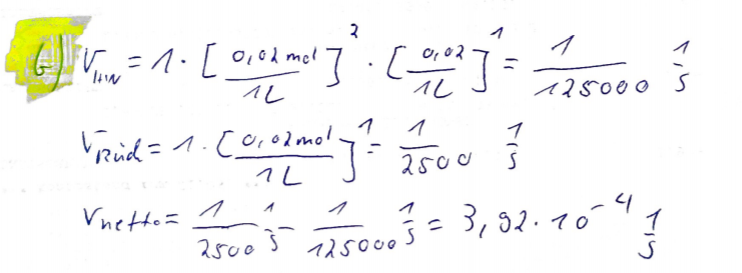 b) V_Hin = 1 · [0,02 mol / 1L]^2 · [0,02 / 1L]^1 = 1/125000 1/s
V_Rück = 1 · [0,02 mol / 1L]^1 = 1/2500 1/s
V_netto = 1/2500 1/s - 1/125000 1/s = 3,92 · 10^-4 1/s